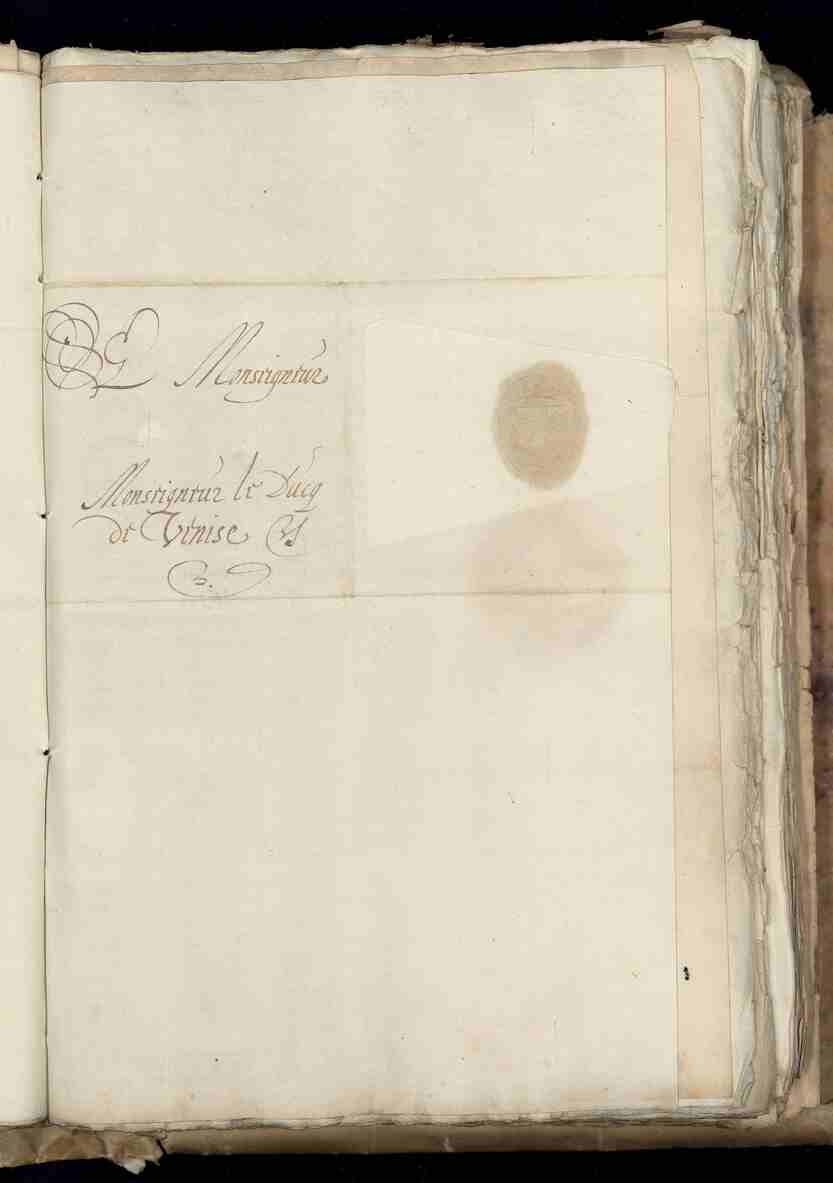 A Monseigneur
Monseigneur le Ducq
de Venise